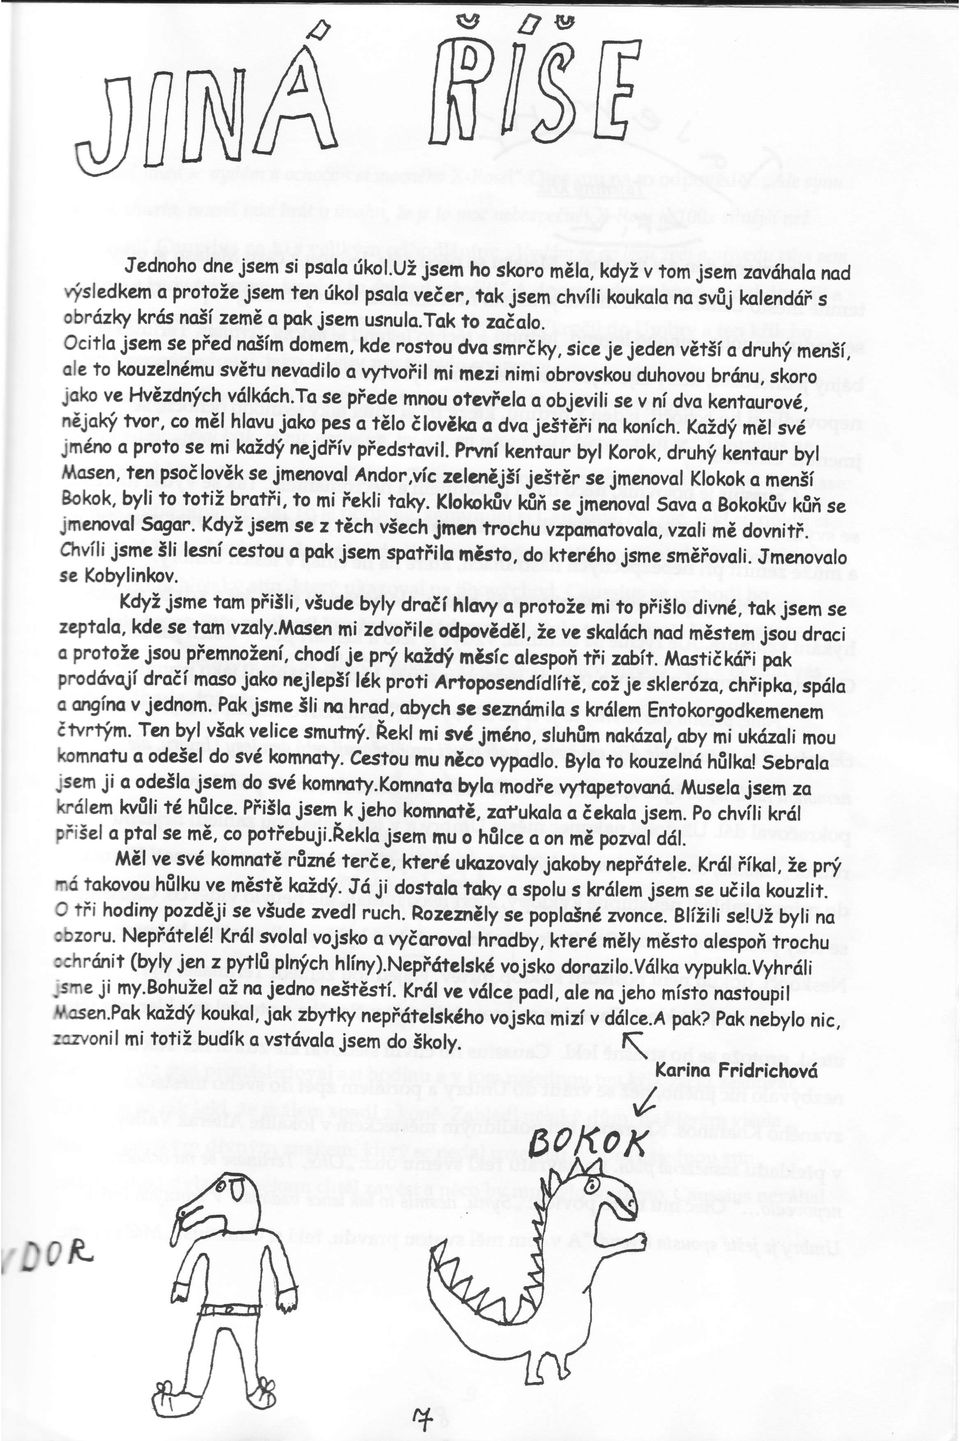 JINÁ ŘÍŠE
Jednoho dne jsem si psala úkol.Už jsem ho skoro měla, když v tom jsem zaváhala nad
výsledkem a protože jsem ten úkol psala večer, tak jsem chvíli koukala na svůj kalendář s
obrázky krás naší země a pak jsem usnula.Tak to začalo.
Ocitla jsem se před naším domem, kde rostou dva smrčky, sice je jeden větší a druhý menší,
ale to kouzelnému světu nevadilo a vytvořil mi mezi nimi obrovskou duhovou bránu, skoro
jako ve Hvězdných válkách.Ta se přede mnou otevřela a objevili se v ní dva kentaurové,
nějaký tvor, co měl hlavu jako pes a tělo člověka a dva ještěři na koních. Každý měl své
jméno a proto se mi každý nejdřív představil. První kentaur byl Korok, druhý kentaur byl
Masen, ten psočlověk se jmenoval Andor,víc zelenější ještěr se jmenoval Klokok a menší
Bokok, byli to totiž bratři, to mi řekli taky. Klokokův kůň se jmenoval Sava a Bokokův kůň se
jmenoval Sagar. Když jsem se z těch všech jmen trochu vzpamatovala, vzali mě dovnitř.
Chvíli jsme šli lesní cestou a pak jsem spatřila město, do kterého jsme směřovali. Jmenovalo
se Kobylinkov.
Když jsme tam přišli, všude byly dračí hlavy a protože mi to přišlo divné, tak jsem se
zeptala, kde se tam vzaly.Masen mi zdvořile odpověděl, že ve skalách nad městem jsou draci
a protože jsou přemnožení, chodí je prý každý měsíc alespoň tři zabít. Mastičkáři pak
prodávají dračí maso jako nejlepší lék proti Artoposendídlítě, což je skleróza, chřipka, spála
a angína v jednom. Pak jsme šli na hrad, abych se seznámila s králem Entokorgodkemenem
čtvrtým. Ten byl však velice smutný. Řekl mi své jméno, sluhům nakázal, aby mi ukázali mou
komnatu a odešel do své komnaty. Cestou mu něco vypadlo. Byla to kouzelná hůlka! Sebrala
jsem ji a odešla jsem do své komnaty.Komnata byla modře vytapetovaná. Musela jsem za
králem kvůli té hůlce. Přišla jsem k jeho komnatě, zaťukala a čekala jsem. Po chvíli král
přišel a ptal se mě, co potřebuji.Řekla jsem mu o hůlce a on mě pozval dál.
Měl ve své komnatě různé terče, které ukazovaly jakoby nepřátele. Král říkal, že prý
má takovou hůlku ve městě každý. Já ji dostala taky a spolu s králem jsem se učila kouzlit.
O tři hodiny později se všude zvedl ruch. Rozezněly se poplašné zvonce. Blížili se!Už byli na
obzoru. Nepřátelé! Král svolal vojsko a vyčaroval hradby, které měly město alespoň trochu
ochránit (byly jen z pytlů plných hlíny).Nepřátelské vojsko dorazilo.Válka vypukla.Vyhráli
jsme ji my.Bohužel až na jedno neštěstí. Král ve válce padl, ale na jeho místo nastoupil
Masen.Pak každý koukal, jak zbytky nepřátelského vojska mizí v dálce.A pak? Pak nebylo nic,
zazvonil mi totiž budík a vstávala jsem do školy.
Karina Fridrichová
BOKOK
DOR
7